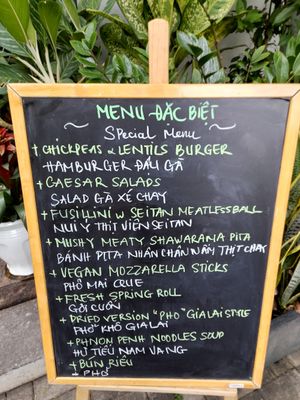 MENU ĐẶC BIỆT
Special Menu
+ CHICKPEAS & LENTILS BURGER
HAMBURGER ĐẬU GÀ
+ CAESAR SALADS
SALAD GÀ XÉ CHAY
+ FUSILLINI w SEITAN MEATLESSBALL
NUI Ý THỊT VIÊN SEITAN
+ MUSHY MEATY SHAWARAMA PITA
BÁNH PITA NHÂN CHÂN NẤM THỊT CHAY
+ VEGAN MOZZARELLA STICKS
PHÔ MAI QUE
+ FRESH SPRING ROLL
GỎI CUỐN
+ DRIED VERSION "PHO" GIALAI STYLE
PHỞ KHÔ GIA LAI
+ PHNOM PENH NOODLES SOUP
HỦ TIẾU NAM VANG
+ BÚN RIÊU
+ PHỞ